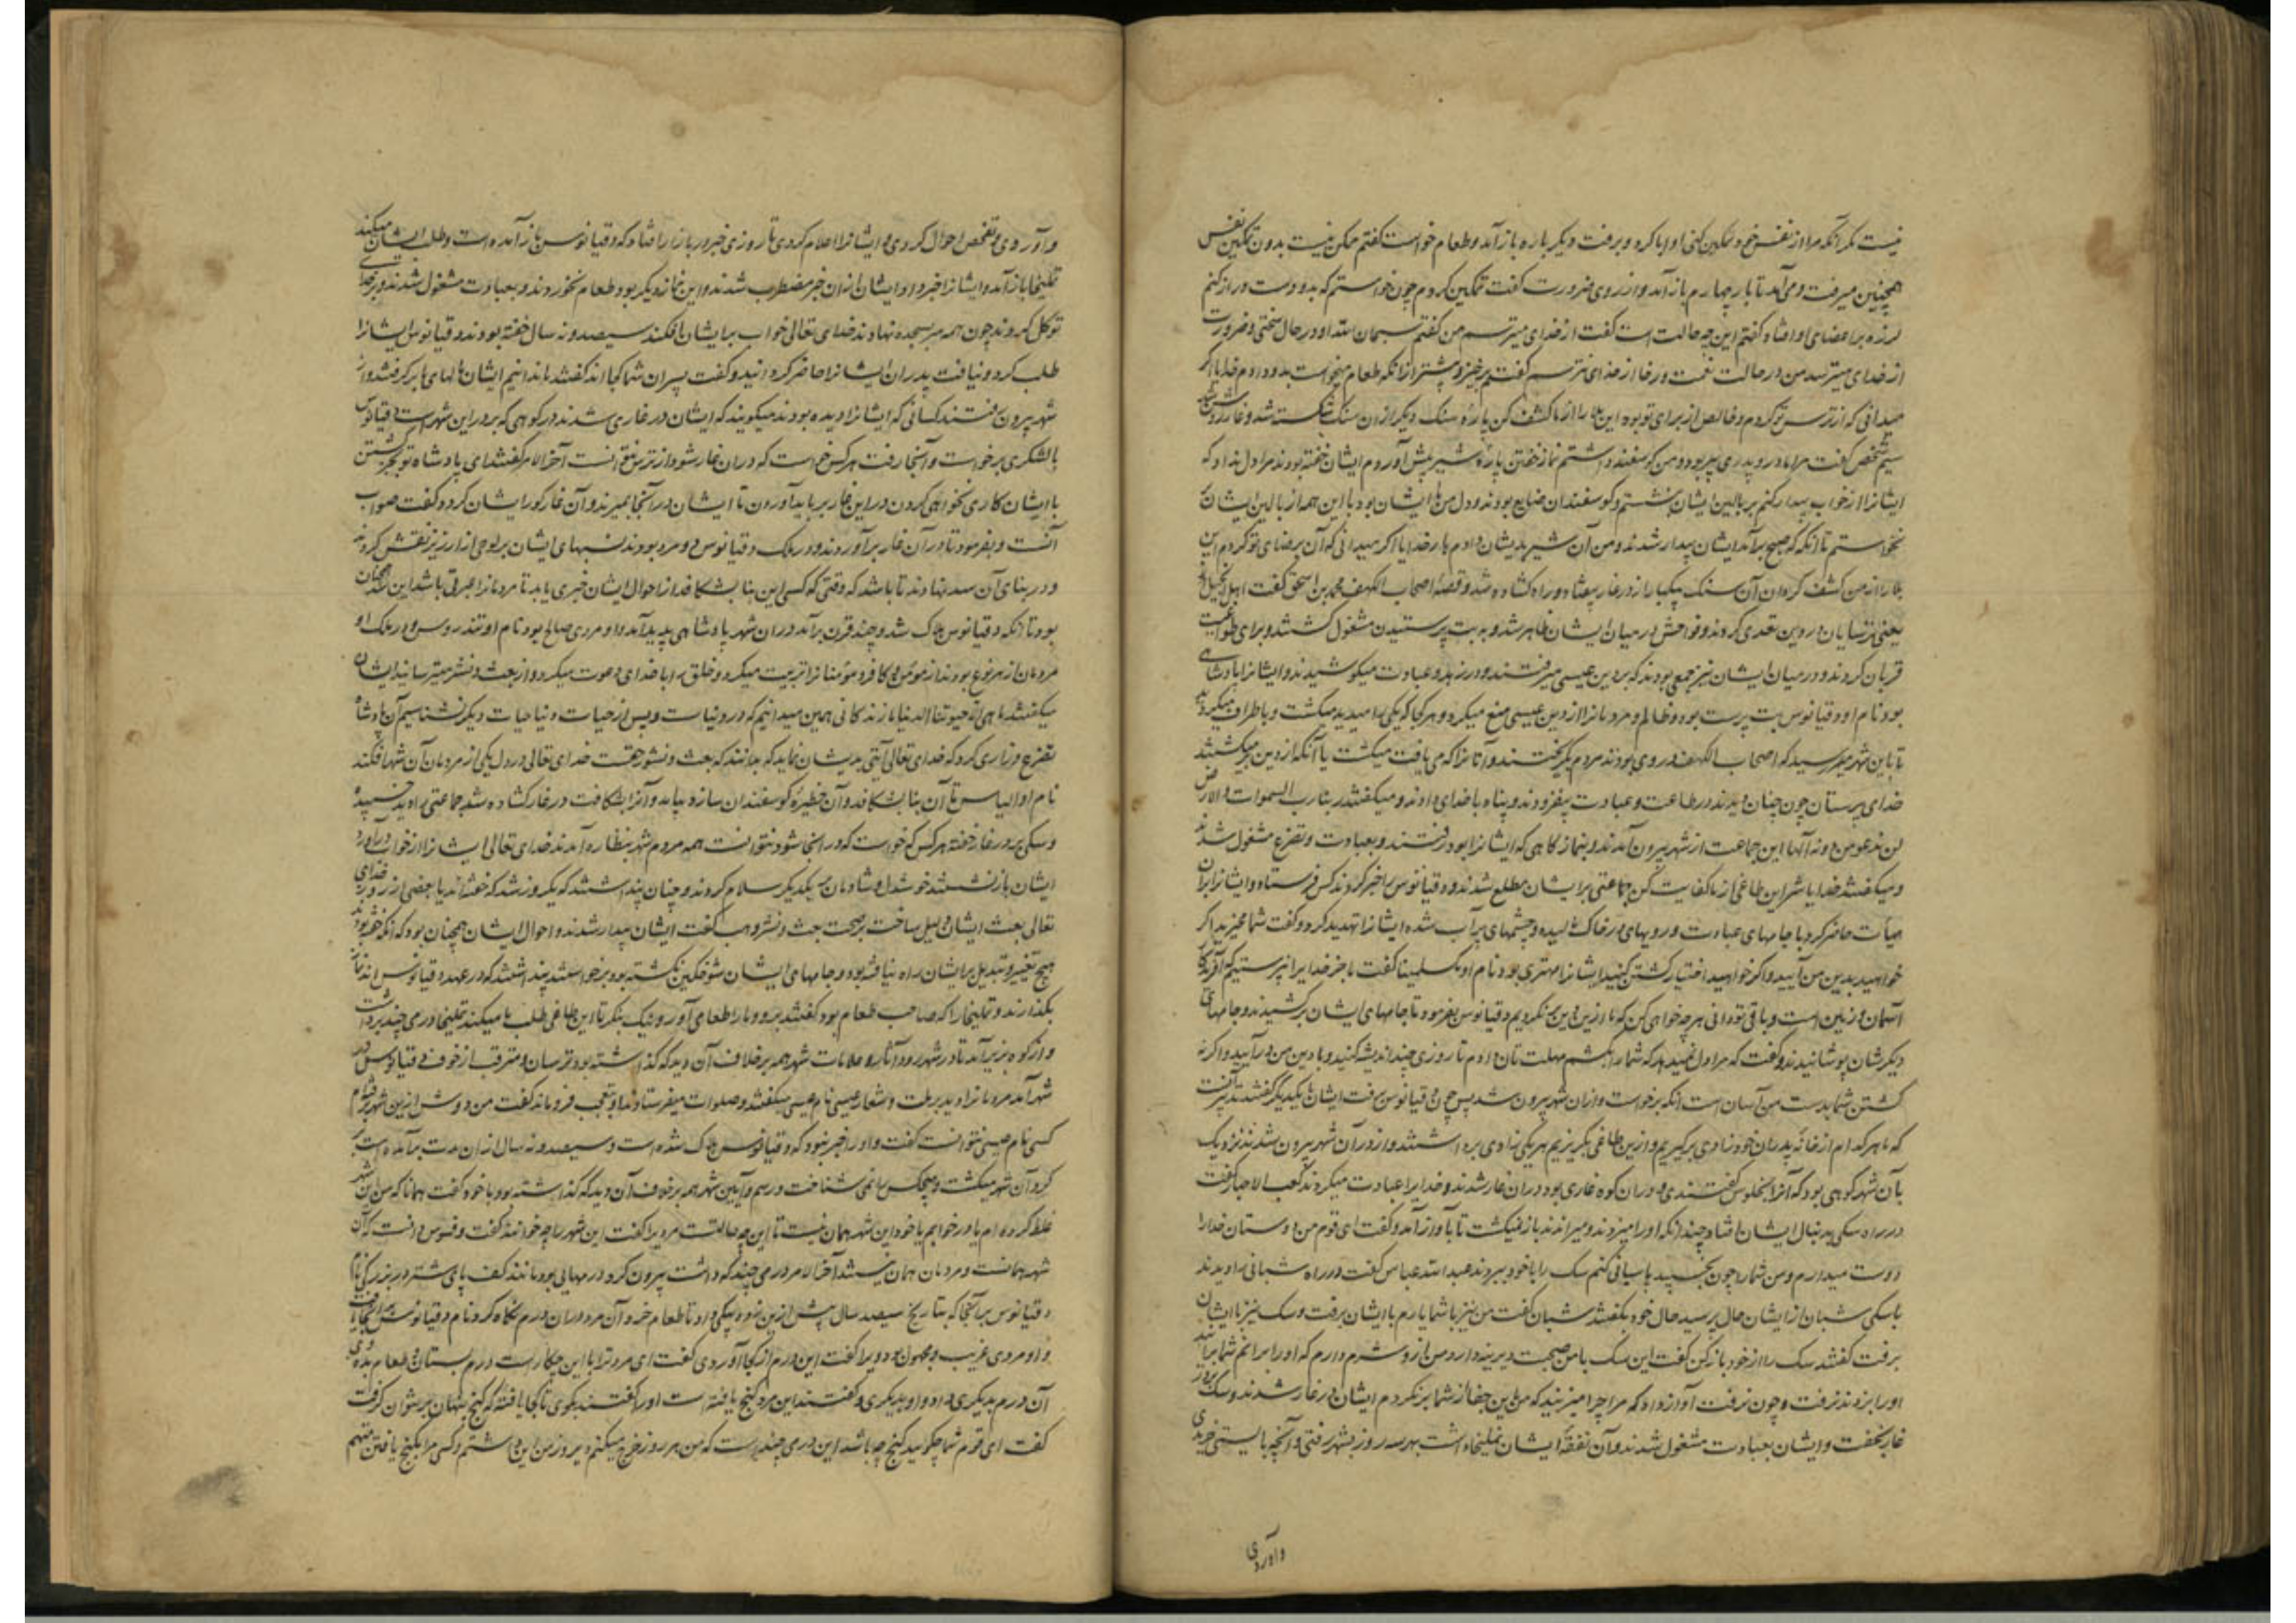 نیست مگر آنکه مرا از نفس خود تمکین کنی او ابا کرد و برفت دیگر باره باز آمد و طعام خواست گفتم ممکن نیست بدون تمکین نفس
همچنین میرفت و می‌آمد تا بار چهارم باز آمد و از روی ضرورت گفت تمکین کردم چون خواستم که بدو دست دراز کنم
لرزه بر اعضای او افتاد گفتم این چه حالت است گفت از خدای میترسم من گفتم سبحان الله او در حال سختی و ضرورت
از خدای میترسد من در حالت نعمت و رخا از خدای نترسم گفتم برخیز و بیشتر از آنکه طعام میخواست بدو دادم خدایا اگر
میدانی که از ترس تو کردم و خالص از برای تو بوده این بلا را از ما کشف کن پاره سنگ دیگر از آن سنگ شکسته شد و غار روشن شد
سیم شخص گفت مرا مادر و پدری پیر بود و من گوسفند داشتم نماز خفتن پاره شیر پیش آوردم ایشان خفته بودند مرا دل نداد که
ایشانرا از خواب بیدار کنم بر بالین ایشان بنشستم و گوسفندان ضایع بودند و دل من با ایشان بود با این همه از بالین ایشان
نخواستم تا آنکه که صبح برآمد ایشان بیدار شدند و من آن شیر بدیشان دادم بار خدایا اگر میدانی که آن برضای تو کردم این
بلا را از من کشف گردان آن سنگ بیکبار از در غار بیفتاد و راه گشاده شد و قصه اصحاب الکهف محمد بن اسحق گفت اهل انجیل
یعنی ترسایان در دین تعدی کردند و فواحش در میان ایشان ظاهر شد و به بت پرستیدن مشغول گشتند و برای طواغیت
قربان کردند و در میان ایشان نیز جمعی بودند که بر دین عیسی میرفتند و در زهد و عبادت میکوشیدند و ایشانرا پادشاهی
بود نام او دقیانوس بت پرست بود و ظالم و مردمانرا از دین عیسی منع میکرد و هر کجا که یکی را میدید میکشت و باطراف میگردید
تا باین شهر برسید که اصحاب الکهف در وی بودند مردم بگریختند و آنانرا که می یافت میکشت یا آنکه از دین برمیگشتند
خدای پرستان چون چنان دیدند در طاعت و عبادت بیفزودند و پناه با خدای دادند و میگفتند ربنا رب السموات و الارض
لن ندعو من دونه آلها این جماعت از شهر بیرون آمدند و بنمازگاهی که ایشانرا بود رفتند و بعبادت و تضرع مشغول شدند
و میگفتند خدایا شر این طاغی از ما کفایت کن جماعتی بر ایشان مطلع شدند و دقیانوس را خبر کردند کس فرستاد و ایشانرا بران
هیأت حاضر کرد با جامهای عبادت و رویهای در خاک مالیده و چشمهای پر آب شده ایشانرا تهدید کرد و گفت شما مخیرید اگر
خواهید بدین من آیید و اگر خواهید اختیار کشتن کنید ایشانرا مهتری بود نام او مکسلمینا گفت ما جز خدایرا نپرستیم که آفریدگار
آسمان و زمین است و باقی تو دانی هر چه خواهی کن که ما ازین دین برنگردیم دقیانوس بفرمود تا جامهای ایشان برکشیدند و جامهای
دیگرشان پوشانیدند و گفت که مرا دل نمیدهد که شما را بکشم مهلت تان دادم تا روزی چند اندیشه کنید و با دین من درآیید و اگر نه
کشتن شما بدست من آسان است آنکه برخواست و از آن شهر بیرون شد پس چون دقیانوس برفت ایشان با یکدیگر گفتند تدبیر آنست
که ما هر کدام از خانه پدران خود زادی برگیریم و ازین طاغی بگریزیم هر یکی زادی برداشتند و از در آن شهر بیرون شدند نزدیک
بآن شهر کوهی بود که آنرا بنجلوس گفتندی و در آن کوه غاری بود در آن غار شدند و خدایرا عبادت میکردند کعب الاحبار گفت
در راه سگی بدنبال ایشان افتاد چندانکه او را میزدند و میراندند باز نمیگشت تا بآواز آمد و گفت ای قوم من دوستان خدارا
دوست میدارم و من شمارا چون بخسپید پاسبانی کنم سگ را با خود ببردند عبدالله عباس گفت در راه شبانی را دیدند
با سگی شبان از ایشان حال پرسید حال خود بگفتند شبان گفت من نیز با شما یارم با ایشان برفت و سگ نیز با ایشان
برفت گفتند سگ را از خود باز کن گفت این سگ با من صحبت دیرینه دارد من از و شرم دارم که او را برانم شما برانید
او را بزدند نرفت و چون نرفت آواز داد که مرا چرا میزنید که من باین جفا از شما برنگردم ایشان در غار شدند و سگ بر در
غار بخفت و ایشان بعبادت مشغول شدند و آن نفقه ایشان تملیخا داشت بهر سه روز بشهر رفتی و آنچه بایستی خریدی
وآوردی
و آوردی و تفحص احوال کردی و ایشانرا اعلام کردی تا روزی خبر در بازار افتاد که دقیانوس باز آمده است و طلب ایشان میکند
تملیخا باز آمد و ایشانرا خبر داد ایشان از آن خبر مضطرب شدند و این نماز دیگر بود طعام نخوردند و بعبادت مشغول شدند و بر خدای
توکل کردند چون همه سر بسجده نهادند خدای تعالی خواب بر ایشان افکند سیصد و نه سال خفته بودند دقیانوس ایشانرا
طلب کرد و نیافت پدران ایشانرا حاضر گردانید و گفت پسران شما کجااند گفتند ما ندانیم ایشان مالهای ما برگرفتند و از
شهر بیرون رفتند کسانی که ایشانرا دیده بودند میگویند که ایشان در غاری شدند در کوهی که بر در این شهر است دقیانوس
با لشکری برخواست و آنجا رفت هر کس خواست که در آن غار شود از ترس نتوانست آخرالامر گفتند ای پادشاه تو بجز کشتن
با ایشان کاری نخواهی کردن در این غار بر باید آوردن تا ایشان در آنجا بمیرند و آن غار گور ایشان گردد گفت صواب
آنست و بفرمود تا در آن غار برآوردند و در ملک دقیانوس دو مرد بودند نسبهای ایشان بر لوحی از ارزیز نقش کردند
و در بنای آن سد نهادند تا باشد که وقتی که کسی این بنا بشکافد از احوال ایشان خبری یابد تا مردمانرا عبرتی باشد این همچنان
بود تا آنکه دقیانوس هلاک شد و چند قرن برآمد در آن شهر پادشاهی پدید آمد و او مردی صالح بود نام او تندروس و در ملک او
مردمان از هر نوع بودند از مؤمن و کافر و مؤمنانرا تربیت میکرد و خلق را با خدای دعوت میکرد و از بعث و نشر میترسانید ایشان
میگفتند ما هی الا حیوتنا الدنیا ما زندگانی همین میدانیم که در دنیاست و پس از حیات دنیا حیات دیگر نشناسیم آن پادشاه
تضرع و زاری کرد که خدای تعالی آیتی بدیشان نماید که بدانند که بعث و نشور حقست خدای تعالی در دل یکی از مردمان آن شهر افکند
نام او الیاس تا آن بنا بشکافد و آن حظیره گوسفندان سازد بیامد و آنرا بشکافت در غار گشاده شد جماعتی را دید خسپیده
و سگی بر در غار خفته هر کس که خواست که در آنجا شود نتوانست همه مردم شهر بنظاره آمدند خدای تعالی ایشانرا از خواب درآورد
ایشان باز نشستند خوشدل و شادمان بر یکدیگر سلام کردند و چنان پنداشتند که یکروز شد که خفته‌اند یا بعضی از روز خدای
تعالی بعث ایشان دلیل ساخت بر صحت بعث و نشر وهب گفت ایشان بیدار شدند و احوال ایشان همچنان بود که آنکه خفته بودند
هیچ تغییر و تبدیل بر ایشان راه نیافته بود و جامهای ایشان شوخگین نگشته بود برخواستند پنداشتند که در عهد دقیانوس اند نماز
بگذاردند و تملیخا را که صاحب طعام بود گفتند برو و مارا طعامی آور و نیک بنگر تا این طاغی طلب ما میکند تملیخا درمی چند برداشت
و از کوه بزیر آمد تا در شهر رود آثار و علامات شهر همه بر خلاف آن دید که گذاشته بود ترسان و مترقب از خوف دقیانوس در
شهر آمد مردمانرا دید بر ملت و شعار عیسی نام عیسی میگفتند و صلوات میفرستادند او بتعجب فرو ماند گفت من دوش ازین شهر برفتم
کسی نام عیسی نتوانست گفت و او را خبر نبود که دقیانوس هلاک شده است و سیصد و نه سال از آن مدت برآمده است
گرد آن شهر میگشت و هیچکس را نمی شناخت و رسم و آیین شهر همه بر خلاف آن دید که گذاشته بود با خود گفت همانا که من این شهر
غلط کرده ام یا در خوابم یا خود این شهر همان نیست تا این چه حالتست مردیرا گفت این شهر را چه خوانند گفت دفسوس دانست که آن
شهر همانست و مردمان همان نیستند آخرالامر درمی چند که داشت بیرون کرد درمهایی بود مانند کف پای شتر در بزرگی
دقیانوس بر آنجا که بتاریخ سیصد سال پیش ازین زده بیکی داد تا طعام خرد آن مرد در آن درم نگاه کرد و نام دقیانوس بر آنجا یافت
و او مردی غریب و مجهول بود ویرا گفت این درم از کجا آوردی گفت ای مرد ترا با این چکار است درم بستان و طعام بده وی
آن درم بدیگری داد و او بدیگری و گفتند این مرد گنج یافته است او را گفتند بگوی تا کجا یافته که گنج پنهان بر نتوان گرفت
گفت ای قوم شما چگویید گنج چه باشد این درمی چند است که من هر روز خرج میکنم دیروز من این داشتم و کسی مرا بگنج یافتن متهم